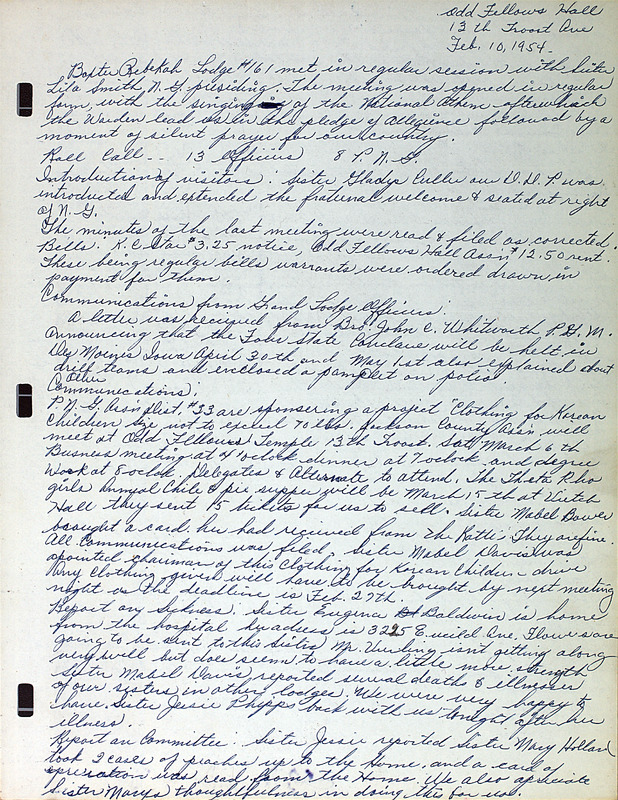 Odd Fellows Hall
13 th Troost Ave
Feb. 10, 1954.
Baxter Rebekah Lodge #161 met in regular session with Sister
Lila Smith, N.G. presiding. The meeting was opened in regular
form, with the singing of the National Athem after which
the Warden lead us in the pledge of Allegiance followed by a
moment of silent prayer for our country.
Roll Call -- 13 Officers 8 P.N.G.
Introduction of visitors: Sister Gladys Culler our D.D.P. was
introducted and extended the fraternal welcome & seated at right
of N.G.
The minutes of the last meeting were read & filed as corrected.
Bills: K.C. Star $3.25 notice, Odd Fellows Hall Ass'n $12.50 rent.
These being regular bills warrants were ordered drawn in
payment for them.
Communications from Grand Lodge Officers:
A letter was recieved from Bro. John C. Whitworth P.G.M.
announcing that the Four State Conclave will be helt in
Des Moines Iowa April 30th and May 1st also explained about
drill teams and enclosed a pamplet on polio
Other
Communications:
P.N.G. Ass'n Dist. #33 are sponsering a project "Clothing for Korean
Children Size not to exceed 70 lbs. Jackson County Ass'n will
meet at Odd Fellows Temple 13th Troost. Sat. March 6 th
Busness meeting at 4 oclock dinner at 7 oclock and degree
Work at 8 oclock Delegates & Alternate to attend. The Theta Rho
girls Annual Chile & pie supper will be March 15 th at
Hall they sent 15 tickets for us to sell. Sister Mabel Bower
brought a card. he had recieved from They are fine.
All Communications was filed, Sister Mabel Davis was
apointed chairman of this Clothing for Korean Children - drive
Any clothing given will have to be brought by next meeting
night as the deadline is Feb. 27th.
Report on Sickness: Sister Eugenia Baldwin is home
from the hospital her adress is 3225 E. Ave. Flowers are
going to be sent to this sister. Mr. isn't getting along
very well but does seem to have a little more strength
Sister Mabel Davis reported serval deaths & illnesses
of our sisters in other lodges. We were very happy to
have Sister Jessie Phipps back with us tonight after her
illness.
Report on Committee: Sister Jessie reported Sister Mary Holland
took 2 cases of peaches up to the Home, and a card of
apreciation was read from the Home. We also apreciate
Sister Marys thoughtfulness in doing this for us.